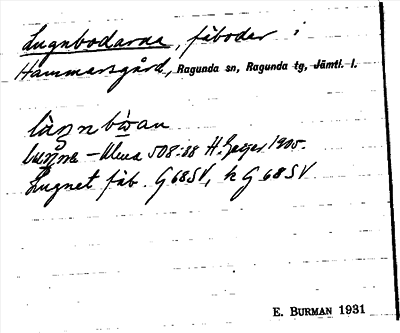 Lugnbodarna, fäbodar i
Hammarsgård, Ragunda sn, Ragunda tg, Jämtl. l.
508:88 H. Geijer 1905.
Lugnet fäb. G 68 SV, k G 68 SV
E. BURMAN 1931